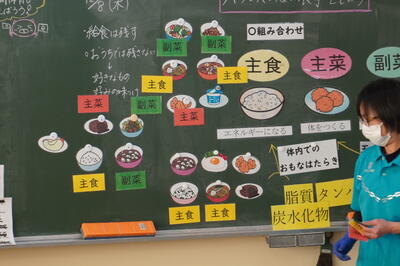 (木)
・給食は残す
・おうちでは残さない
好きなもの
好みの味
○組み合わせ
主食
主菜
副菜
副菜
副菜
主食
主食
副菜
主菜
主菜
エネルギーになる
体をつくる
体内での
おもなはたらき
主食
副菜
主食
主食
脂質
タンパ
炭水化物